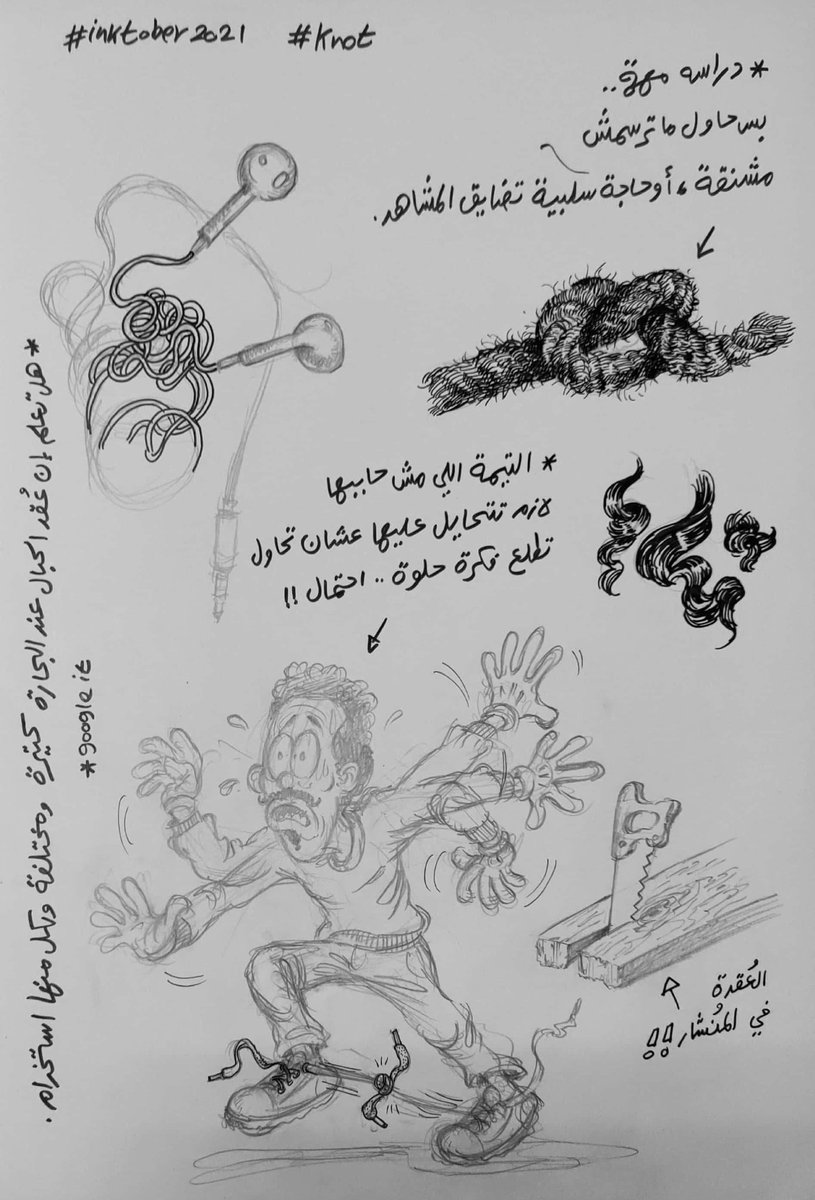 #inktober2021 #Knot
* دراسه مهمة..
بس حاول ما ترسمش
مشنقة، أو حاجة سلبية تضايق المشاهد.
* التيمة اللي مش حاببها
لازم تتحايل عليها عشان تحاول
تطلع فكرة حلوة .. احتمال !!
* هل تعلم إن عُقد الحبال عند البحارة كتيرة ومختلفة وكل منها استخدام.
* google it
العُقدة
في المُنشار !!